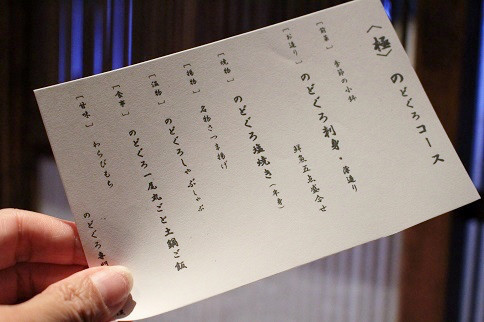 〈極〉 のどぐろコース
［前菜］ 季節の小鉢
［お造り］ のどぐろ刺身・薄造り
鮮魚五点盛合せ
［焼物］ のどぐろ塩焼き（半身）
［揚物］ 名物さつま揚げ
［温物］ のどぐろしゃぶしゃぶ
［食事］ のどぐろ一尾丸ごと土鍋ご飯
［甘味］ わらびもち
のどぐろ専門